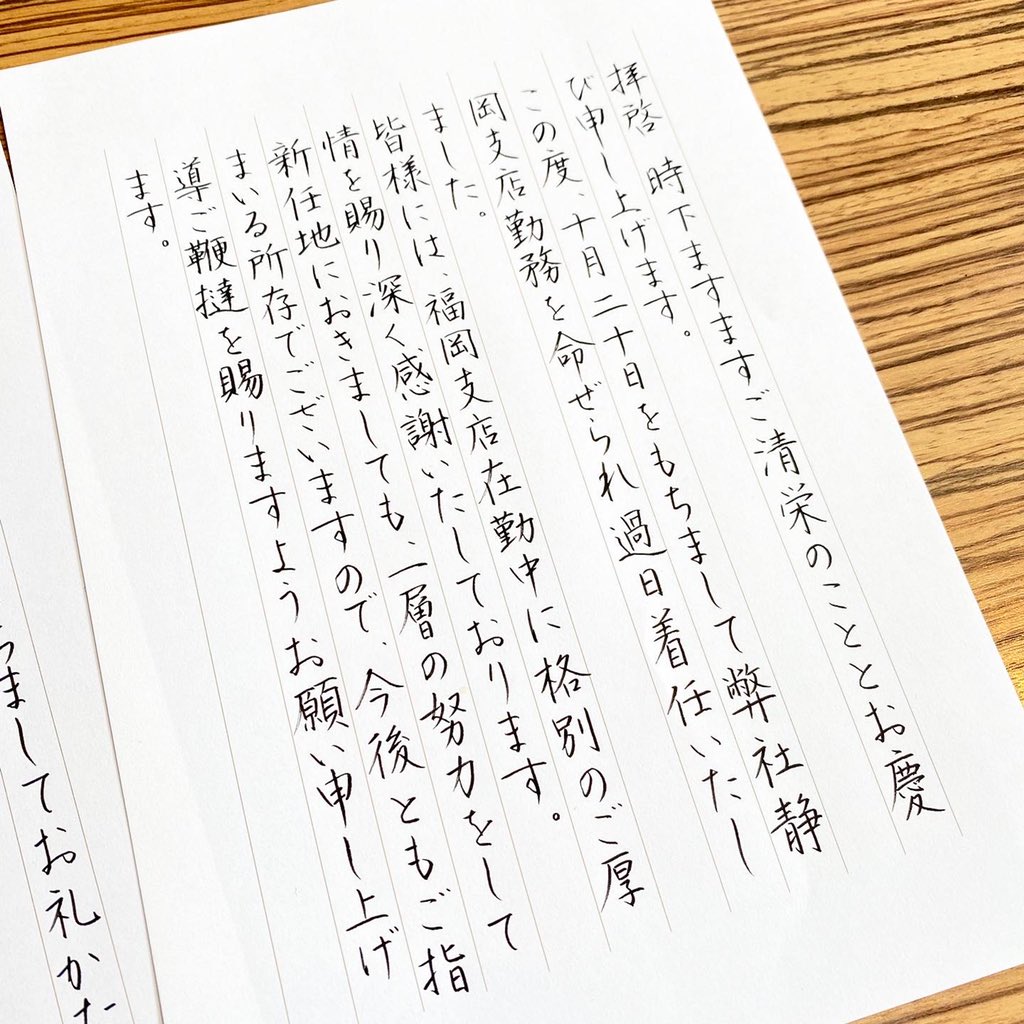 拝啓 時下ますますご清栄のこととお慶
び申し上げます。
この度、十月二十日をもちまして弊社静
岡支店勤務を命ぜられ過日着任いたし
ました。
皆様には、福岡支店在勤中に格別のご厚
情を賜り深く感謝いたしております。
新任地におきましても、一層の努力をして
まいる所存でございますので、今後ともご指
導ご鞭撻を賜りますようお願い申し上げ
ます。
ましてお礼かた